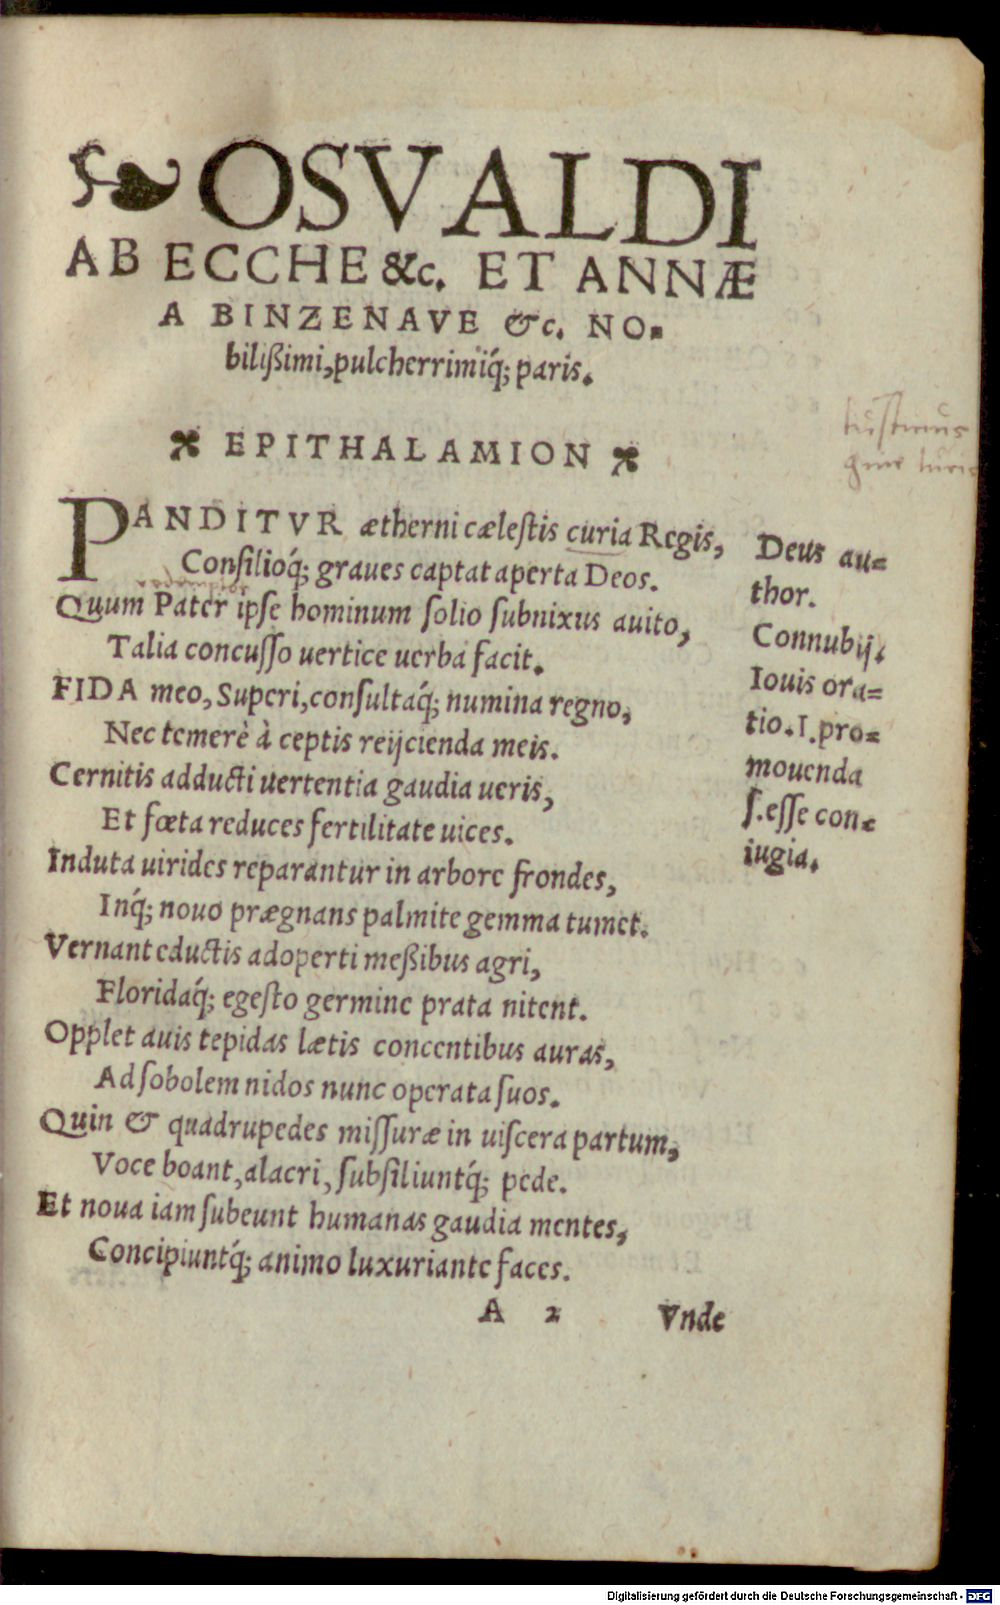 OSVALDI
AB ECCHE &c. ET ANNÆ
A BINZENAVE &c. NO-
bilißimi, pulcherrimiq́; paris.
EPITHALAMION
PANDITVR ætherni cæleſtis curia Regis,
Conſilioq́; graues captat aperta Deos.
Quum Pater ipſe hominum ſolio ſubnixus auito,
Talia concuſſo uertice uerba facit.
FIDA meo, Superi, conſultaq́; numina regno,
Nec temerè à ceptis reijcienda meis.
Cernitis adducti uertentia gaudia ueris,
Et fœta reduces fertilitate uices.
Induta uirides reparantur in arbore frondes,
Inq́; nouo prægnans palmite gemma tumet.
Vernant eductis adoperti meßibus agri,
Floridaq́; egeſto germine prata nitent.
Opplet auis tepidas lætis concentibus auras,
Ad ſobolem nidos nunc operata ſuos.
Quin & quadrupedes miſſuræ in uiſcera partum,
Voce boant, alacri, ſubſiliuntq́; pede.
Et noua iam ſubeunt humanas gaudia mentes,
Concipiuntq́; animo luxuriante faces.
A 2 Vnde
Deus au=
thor.
Connubij.
Iouis ora=
tio. I. pro=
mouenda
ſ. eſſe con=
iugia.
Digitalisierung gefördert durch die Deutsche Forschungsgemeinschaft - DFG